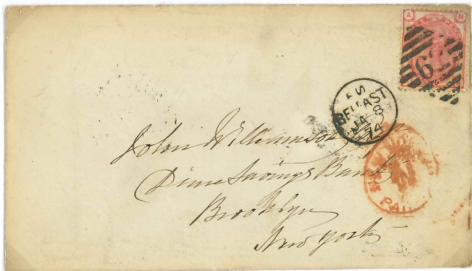 A
62
BELFAST
74
John Williamson
Dime Savings Bank
Brooklyn
New York
PAID